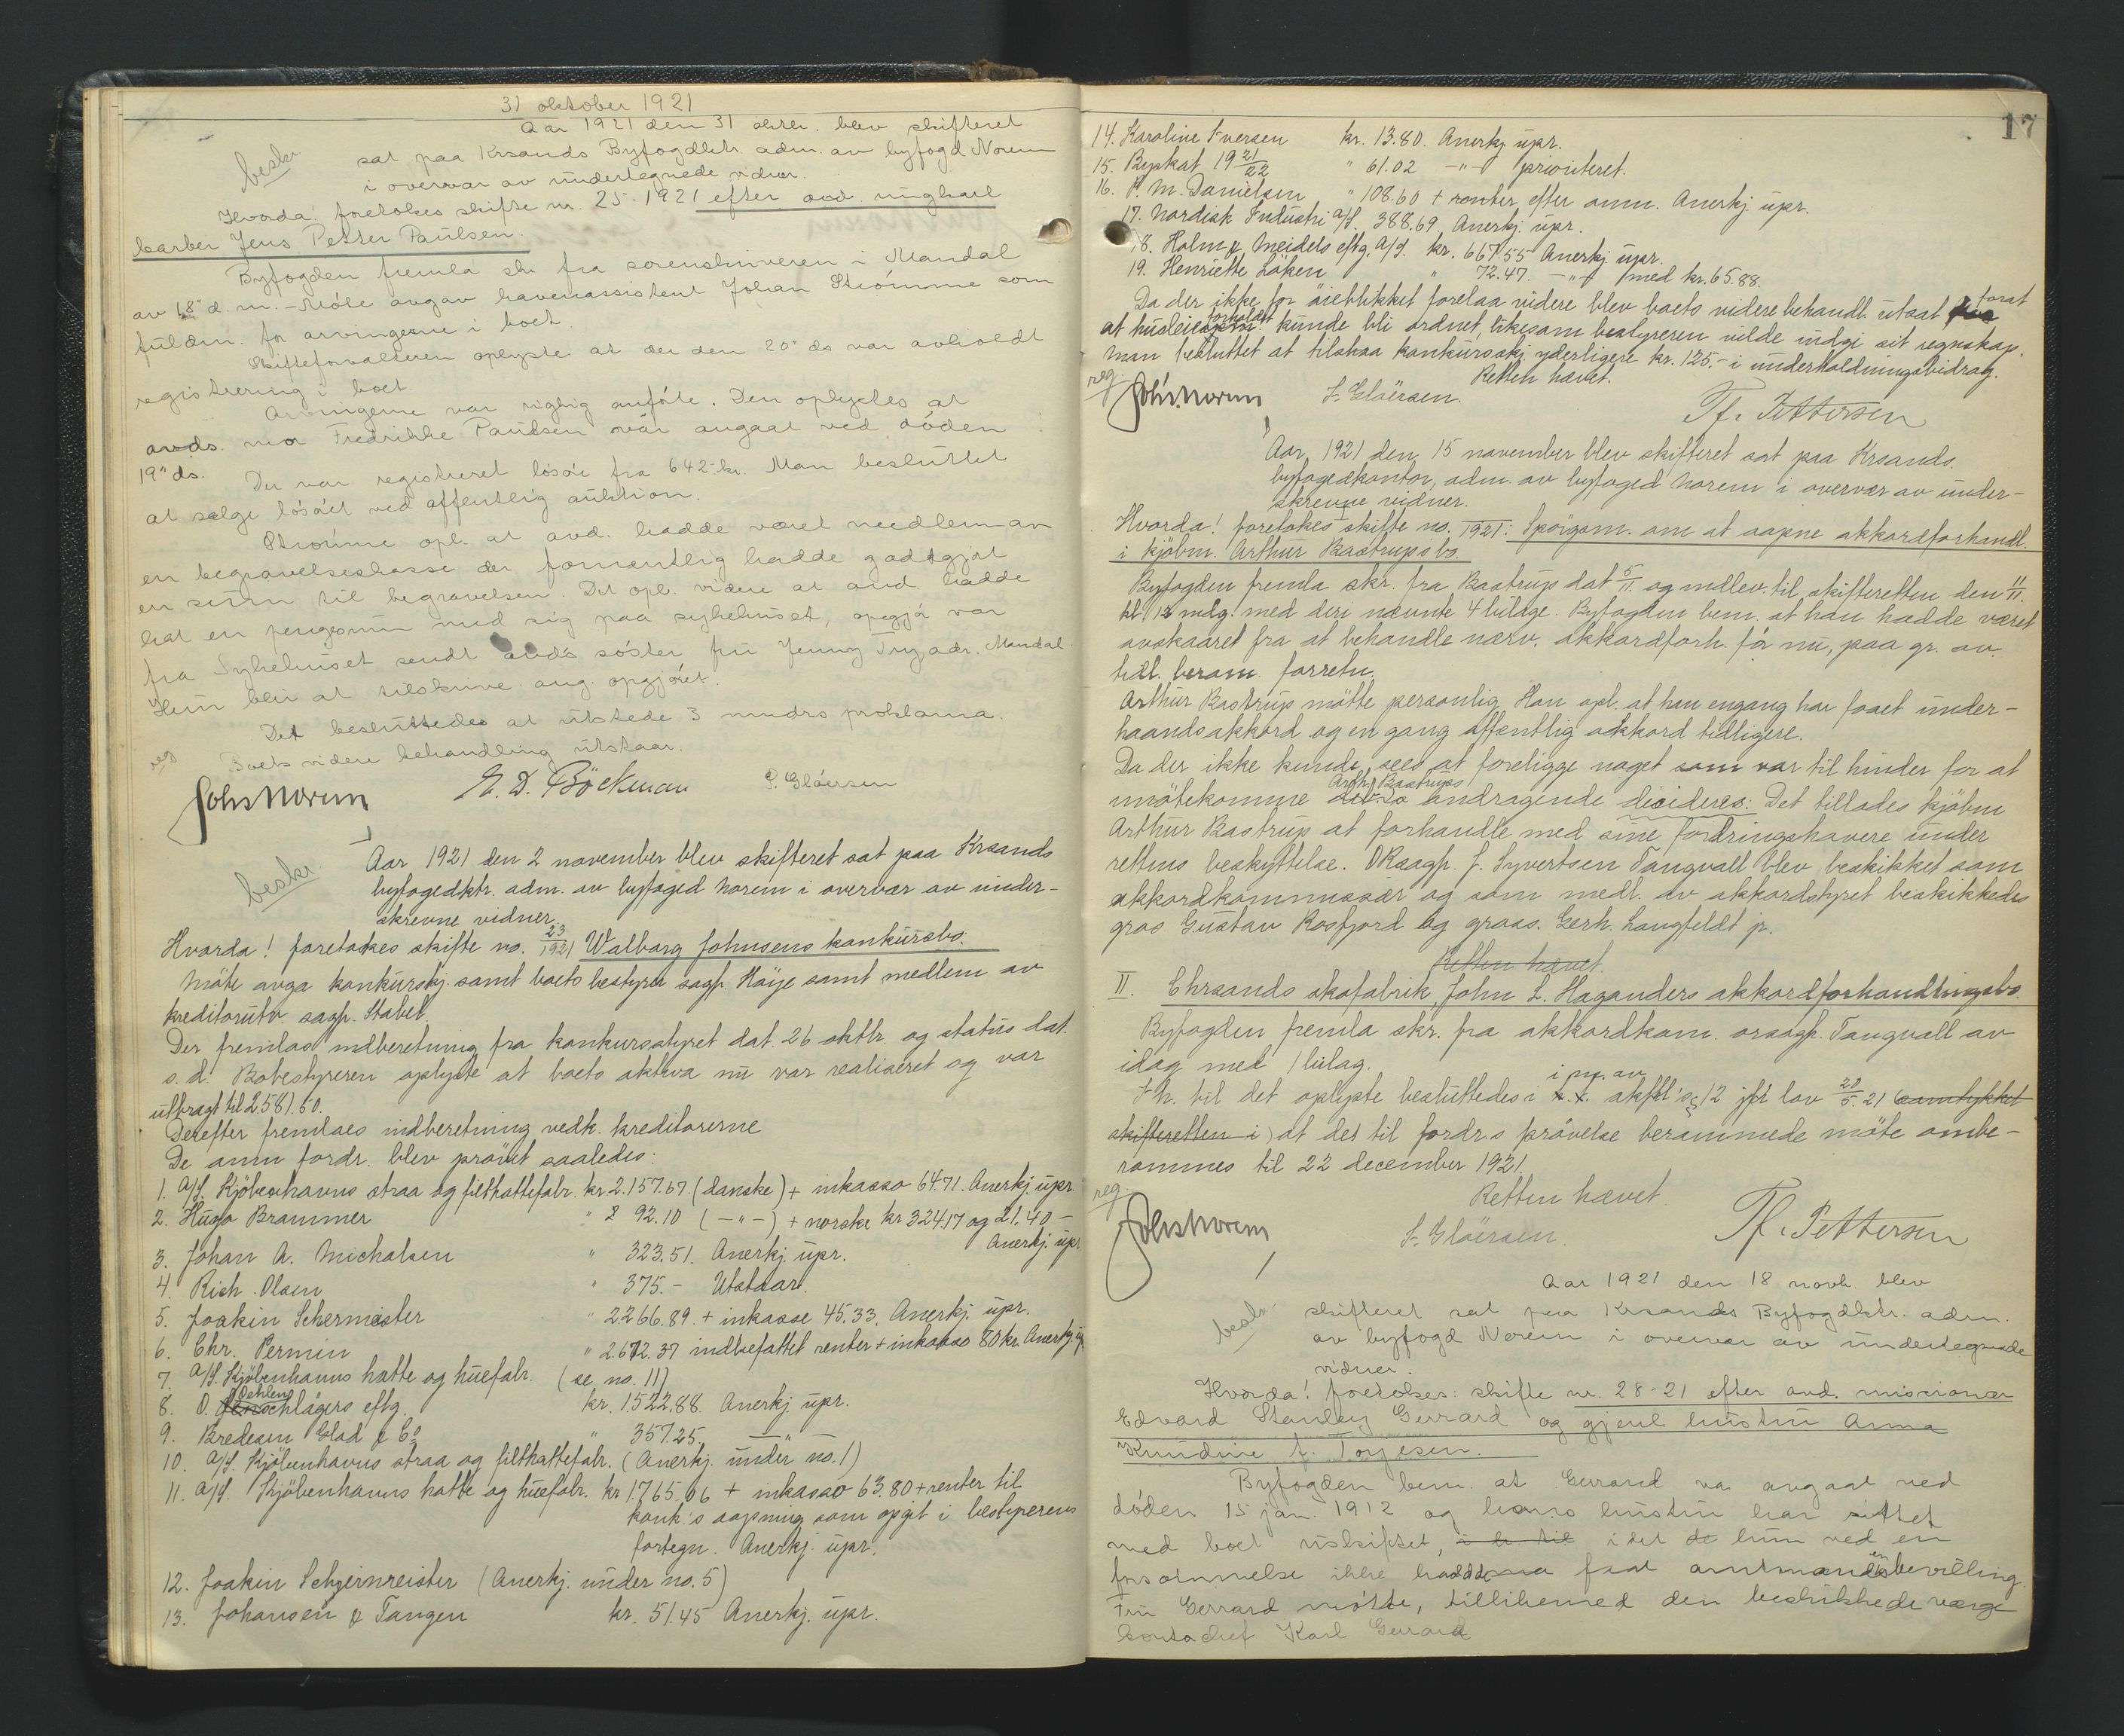 31 oktober 1921
Aar 1921 den 31 oktbr. blev skifteret
beskr
sat paa Krsands Byfogdktr. adm. av byfogd Norem
i overvær av undertegnede vidner.
Hvorda! foretokes skifte nr. 25-1921 efter avd. ungkarl
barber Jens Petter Paulsen.
Byfogden fremla skr. fra sorenskriveren i Mandal
av 18' d. m. - Møte avgav havneassistent Johan Strømme som
fuldm. for arvingerne i boet.
Skifteforvalteren oplyste at der den 20' ds var avholdt
registrering i boet
Arvingerne var rigtig anførte. Den oplystes at
avds. mor Fredrikke Paulsen var avgaat ved døden
19' ds.
Der var registreret løsøre fra 642- kr. Man besluttet
at sælge løsøret ved offentlig auktion.
Strømme opl. at avd. hadde været medlem av
en begravelseskasse der formentlig hadde godtgjort
en sum til begravelsen. Det opl. videre at avd. hadde
hat en pengesum med sig paa sykehuset, opgjør var
fra Sykehuset sendt avds søster fru Jenny Try adr. Mandal
Hun blir at tilskrive ang. opgjøret.
Det besluttedes at utstede 3 mndrs proklama.
Boets videre behandling utstaar.
reg
Johs Norem E. D. Böckman S. Gløersen
beskr
Aar 1921 den 2 november blev skifteret sat paa Krsands
byfogedktr. adm. av byfoged Norem i overvær av under-
skrevne vidner.
Hvorda! foretokes skifte no. 23/1921 Walborg Johnsens konkursbo.
Möte avga konkursskj. samt boets bestyrer sagf. Höije samt medlem av
kreditorutv. sagf. Stabel.
Der fremlaes indberetning fra konkursstyret dat. 26 oktbr. og status dat.
s.d. Bobestyreren oplyste at boets aktiva nu var realiseret og var
utbragt til 2.581.50.
Derefter fremlaes indberetning vedk. kreditorerne
De anm fordr. blev prövet saaledes:
1. A/S. Kjöbenhavns straa og filthattefabr. kr 2.157.67. (danske) + inkasso 64.71. Anerkj. upr.
2. Hugo Brammer " 892.10 (-"-) + norske kr 324.17 og 21.40 -
Anerkj. upr.
3. Johan A. Michalsen " 323.51. Anerkj. upr.
4. Rich. Olsen " 375.- Utstaar.
5. Joakin Schermeister " 2266.89. + inkasso 45.33. Anerkj. upr.
6. Chr. Permin " 2.672.37 indbefattet renter + inkasso 80 kr. Anerkj. upr.
7. A/S. Kjöbenhavns hatte og huefabr. (se no. 11)
8. O. Oehlenschlägers eftg. kr. 1522.88. Anerkj. upr.
9. Bredesen Glad & Co " 357.25. -"-
10. A/S. Kjöbenhavns straa og filthattefabr. (Anerkj. under no. 1)
11. A/S. Kjöbenhavns hatte og huefabr. kr 1765.06 + inkasso 63.80 + renter til
konk's aapning som opgit i bestyrerens
fortegn. Anerkj. upr.
12. Joakin Schjeirmeister (Anerkj. under no. 5)
13. Johansen & Tangen kr. 51.45 Anerkj. upr.
17
14. Karoline Iversen kr. 13.80. Anerkj. upr.
15. Byskat 1921/22 " 61.02 -"- prioriteret.
16. P. M. Danielsen " 108.60 + renter efter anm. Anerkj. upr.
17. Nordisk Industri A/S. 388.69. Anerkj. upr.
18. Holm & Meidels eftg. A/S. kr. 667.55 Anerkj. upr.
19. Henriette Löken " 72.47. -"- med kr. 65.88.
Da der ikke for öieblikket forelaa videre blev boets videre behandl. utsat forat
at husleieforholdet kunde bli ordnet, likesom bestyreren vilde indgi sit regnskap.
Man besluttet at tilstaa konkursskj. yderligere kr. 125.- i underholdningsbidrag.
Retten hævet.
reg.
Johs. Norem S. Gløersen. Th. Pettersen
Aar 1921 den 15 november blev skifteret sat paa Krsands.
byfogedkontor, adm. av byfoged Norem i overvær av under-
skrevne vidner.
Hvorda! foretokes I skifte no. 1921: Spörgsm. om at aapne akkordforhandl.
i kjöbm. Arthur Bastrups bo.
Byfogden fremla skr. fra Bastrup dat 5/11. og indlev. til skifteretten den 11/11.
kl 12 mdg. med deri nævnte 4 bilage. Byfogden bem. at han hadde været
avskaaret fra at behandle nærv. akkordforh. för nu, paa gr. av
tidl. beram. forretn.
Arthur Bastrup mötte personlig. Han opl. at han engang har faaet under-
haandsakkord og en gang offentlig akkord tidligere.
Da der ikke kunde sees at foreligge noget som var til hinder for at
imötekomme Arth. Bastrups andragende decideres: Det tillades kjöbm
Arthur Bastrup at forhandle med sine fordringshavere under
rettens beskyttelse. ORsagf. J. Syvertsen Tangvall blev beskikket som
akkordkommissær og som medl. av akkordstyret beskikkedes
gros Gustav Rosfjord og gross. Gerh. Langfeldt jr.
Retten hævet.
II. Chrsands skofabrik, John L. Haganders akkordforhandlingsbo.
Byfogden fremla skr. fra akkordkom. orsagf. Tangvall av
idag med 1 bilag.
I h. til det oplyste besluttedes i mf. av akfhl's § 12 jfr lov 20/5. 21 samtykket
skifteretten i) at det til fordr.s prövelse berammede möte ombe-
rammes til 22 december 1921.
Retten hævet.
reg.
Johs Norem S. Gløersen. Th. Pettersen
Aar 1921 den 18 novb. blev
beskr
skifteret sat paa Krsands Byfogdktr. adm.
av byfogd Norem i overvær av undertegnede
vidner.
Hvorda! foretokes: skifte nr. 28-21 efter avd. missionær
Edvard Stanley Gerrard og gjenl. hustru Anna
Knudine f. Torjesen.
Byfogden bem. at Gerrard var avgaat ved
døden 15 jan. 1912 og hans hustru har sittet
med boet uskiftet, idet hun ved en
forsømmelse ikke hadde faat amtmandens bevilling
Fru Gerrard møtte, tillikemed den beskikkede værge
Karl Gerrard